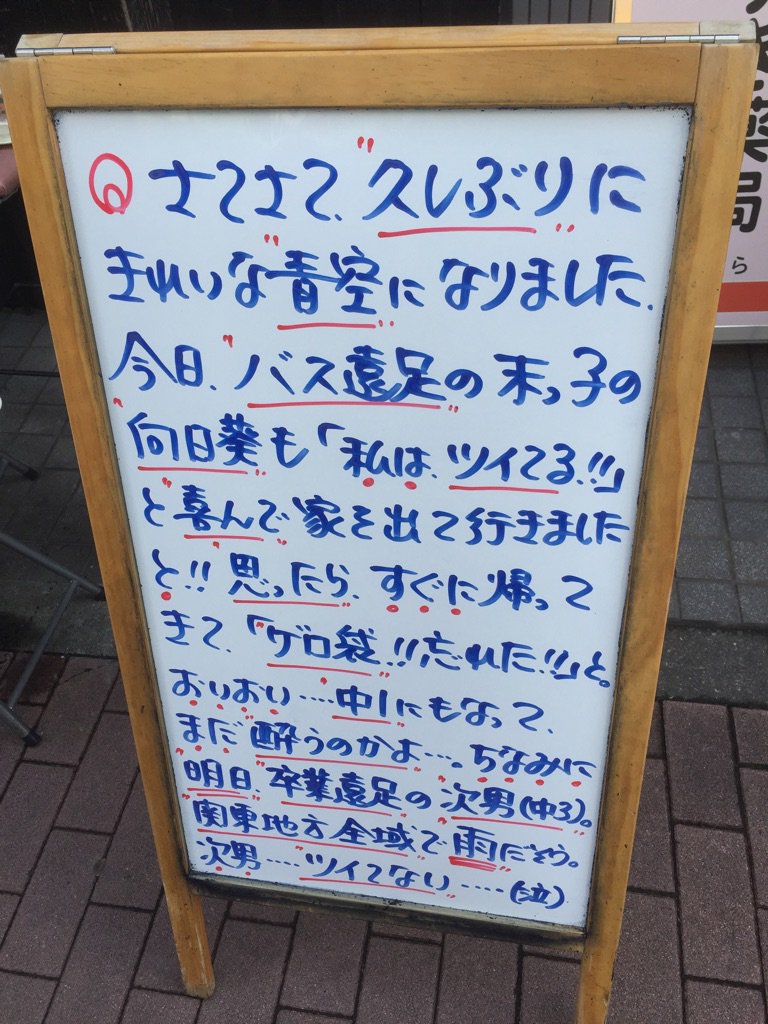 Q さてさて、"久しぶり"に
きれいな"青空"になりました。
今日、"バス遠足"の末っ子の
"向日葵"も「私は、ツイてる!!」
と"喜んで"家を出て行きました
と!!思ったら、すぐに帰って
きて、「"ゲロ袋"!!忘れた!!」と。
おいおい‥‥中1にもなって、
まだ"酔うのかよ…。ちなみに
明日、"卒業遠足"の次男(中3)。
関東地方全域で"雨"だそう。
次男‥‥ツイてない‥‥(泣)
薬局
ら